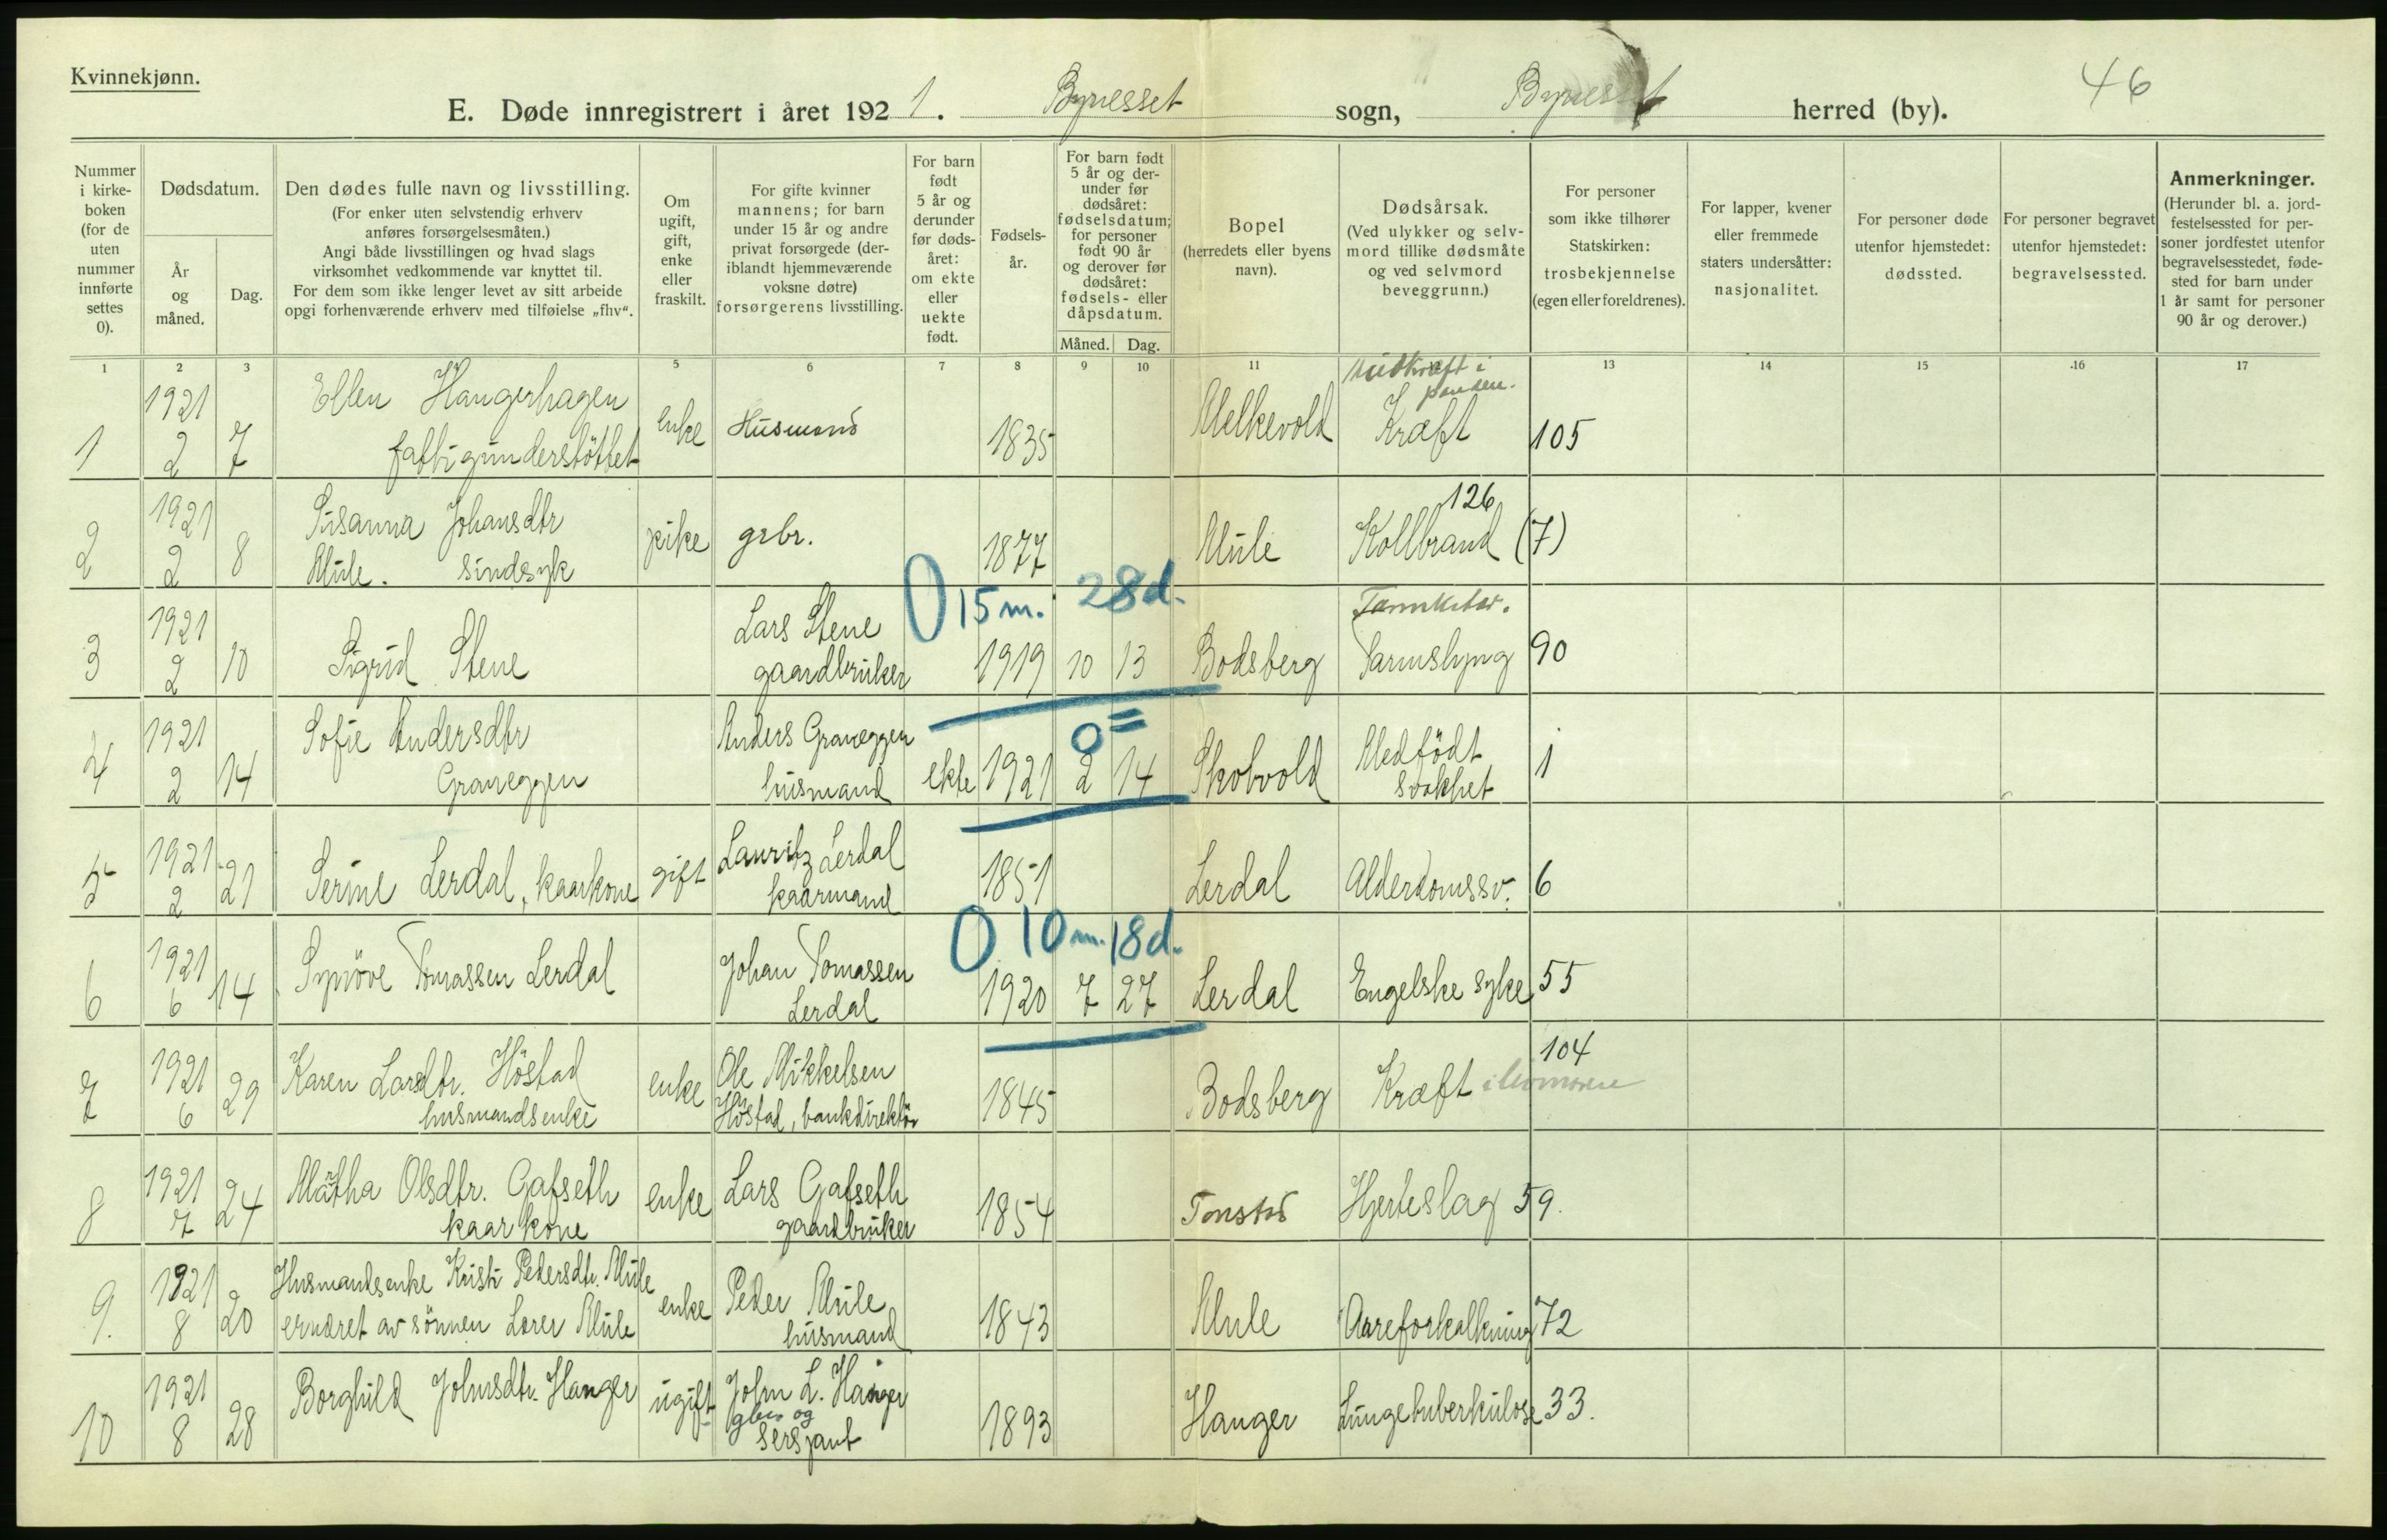 Kvinnekjønn.
46
E. Døde innregistrert i året 1921. Bynesset sogn, Bynesset herred (by).
Nummer i kirke-boken (for de uten nummer innførte settes 0).
Dødsdatum.
År og måned.
Dag.
Den dødes fulle navn og livsstilling.
(For enker uten selvstendig erhverv anføres forsørgelsesmåten.)
Angi både livsstillingen og hvad slags virksomhet vedkommende var knyttet til.
For dem som ikke lenger levet av sitt arbeide opgi forhenværende erhverv med tilføielse „fhv“.
Om ugift, gift, enke eller fraskilt.
For gifte kvinner mannens; for barn under 15 år og andre privat forsørgede (deriblandt hjemmeværende voksne døtre) forsørgerens livsstilling.
For barn født 5 år og derunder før døds-året: om ekte eller uekte født.
Fødsels-år.
For barn født 5 år og der-under før dødsåret: fødselsdatum; for personer født 90 år og derover før dødsåret: fødsels- eller dåpsdatum.
Måned. Dag.
Bopel (herredets eller byens navn).
Dødsårsak.
(Ved ulykker og selv-mord tillike dødsmåte og ved selvmord beveggrunn.)
For personer som ikke tilhører Statskirken: trosbekjennelse (egen eller foreldrenes).
For lapper, kvener eller fremmede staters undersåtter: nasjonalitet.
For personer døde utenfor hjemstedet: dødssted.
For personer begravet utenfor hjemstedet: begravelsessted.
Anmerkninger.
(Herunder bl. a. jord-festelsessted for per-soner jordfestet utenfor begravelsesstedet, føde-sted for barn under 1 år samt for personer 90 år og derover.)
1 2 3 5 6 7 8 9 10 11 13 14 15 16 17
1 1921 2 7 Ellen Hangerhagen fattigunderstöttet enke Husmand 1835 Melkevold Hudkræft i panden. Kræft 105
2 1921 2 8 Susanna Johansdtr Mule. sindsyk pike grbr. 1877 Mule Kollbrand 126 (7)
0 15 m. 28 d.
3 1921 2 10 Sigrid Stene Lars Stene gaardbruker 1919 10 13 Bodsberg Tarmslyng 90
0 =
4 1921 2 14 Sofie Andersdtr Graneggen Anders Graneggen husmand ekte 1921 2 14 Skotvold Medfödt svakhet 1
5 1921 2 21 Serine Lerdal, kaarkone gift Lauritz Lerdal kaarmand 1851 Lerdal Alderdomssv. 6
0 10 m. 18 d.
6 1921 6 14 Synöve Tomassen Lerdal Johan Tomassen Lerdal 1920 7 27 Lerdal Engelske syke 55
7 1921 6 29 Karen Larsdtr. Höstad husmandsenke enke Ole Mikkelsen Höstad, bankdirektör 1845 Bodsberg Kræft 104
8 1921 7 24 Martha Olsdtr. Gafseth kaarkone enke Lars Gafseth gaardbruker 1854 Tonstad Hjerteslag 59.
9. 1921 8 20 Husmandsenke Kristi Pedersdtr. Mule ernæret av sönnen Lorer Mule enke Peder Mule husmand 1843 Mule Aareforkalkning 72
10 1921 8 28 Borghild Johnsdtr. Hanger ugift John L. Hanger gbr. og sersjant 1893 Hanger Lungetuberkulose 33.